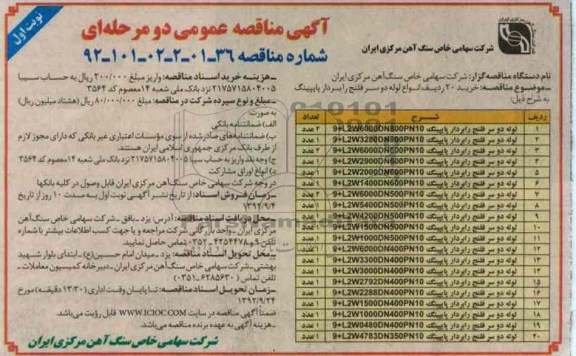 نوبت اول
آگهی مناقصه عمومی دو مرحله‌ای
شماره مناقصه ۳۶-۰۱-۲-۰۲-۱۰۱-۹۲
شرکت سهامی خاص سنگ آهن مرکزی ایران
نام دستگاه مناقصه گزار: شرکت سهامی خاص سنگ آهن مرکزی ایران
موضوع مناقصه: خرید ۲۰ ردیف انواع لوله دو سر فلنج رابردار پایپینگ
به شرح ذیل:
ردیف شرح تعداد
۱ لوله دو سر فلنج رابردار پایپینگ 9+L2W6000DN800PN10
۲ لوله دو سر فلنج رابردار پایپینگ 9+L2W3280DN600PN10
۳ لوله دو سر فلنج رابردار پایپینگ 9+L2W6000DN600PN10
۴ لوله دو سر فلنج رابردار پایپینگ 9+L2W2900DN600PN10
۵ لوله دو سر فلنج رابردار پایپینگ 9+L2W2000DN600PN10
۶ لوله دو سر فلنج رابردار پایپینگ 9+L2W1400DN600PN10
۷ لوله دو سر فلنج رابردار پایپینگ 9+L2W6000DN500PN10
۸ لوله دو سر فلنج رابردار پایپینگ 9+L2W5400DN500PN10
۹ لوله دو سر فلنج رابردار پایپینگ 9+L2W4200DN500PN10
۱۰ لوله دو سر فلنج رابردار پایپینگ 9+L2W1500DN500PN10
۱۱ لوله دو سر فلنج رابردار پایپینگ 9+L2W1000DN500PN10
۱۲ لوله دو سر فلنج رابردار پایپینگ 9+L2W6000DN400PN10
۱۳ لوله دو سر فلنج رابردار پایپینگ
۱۴ لوله دو سر فلنج رابردار پایپینگ 9+L2W3000DN400PN10
۱۵ لوله دو سر فلنج رابردار پایپینگ 9+L2W2792DN400PN10
۱۶ لوله دو سر فلنج رابردار پایپینگ 9+L2W2288DN400PN10
۱۷ لوله دو سر فلنج رابردار پایپینگ
۱۸ لوله دو سر فلنج رابردار پایپینگ 9+L2W1000DN400PN10
۱۹ لوله دو سر فلنج رابردار پایپینگ 9+L2W0480DN400PN10
۲۰ لوله دو سر فلنج رابردار پایپینگ 9+L2W4783DN350PN10
ـ هزینه خرید اسناد مناقصه: واریز مبلغ ۲۰۰/۰۰۰ ریال به حساب سیبا
۲۱۷۵۷۱۵۸۰۴۰۰۵ نزد بانک ملی شعبه ۱۴ معصوم کد ۳۵۶۴
ـ مبلغ و نوع سپرده شرکت در مناقصه: مبلغ ۸۰/۰۰۰/۰۰۰ ریال (هشتاد میلیون ریال)
به صورت
الف) ضمانتنامه بانکی
ب) ضمانتنامه‌های صادرشده از سوی مؤسسات اعتباری غیر بانکی که دارای مجوز لازم
از طرف بانک مرکزی جمهوری اسلامی ایران هستند.
ج) وجه نقد واریز به حساب سیبا ۲۱۷۵۷۱۵۸۰۴۰۰۵ نزد بانک ملی شعبه ۱۴ معصوم کد ۳۵۶۴
د) انواع اوراق مشارکت
در وجه شرکت سهامی خاص سنگ آهن مرکزی ایران قابل وصول در کلیه بانکها
ـ زمان فروش اسناد: از تاریخ نشر آگهی نوبت اول به مدت ۱۰ روز از تاریخ
۱۳۹۲/۹/۴
ـ محل دریافت اسناد مناقصه: آدرس: یزد ـ بافق ـ شرکت سهامی خاص سنگ آهن
مرکزی ایران ـ واحد بازرگانی شرکت مراجعه و یا جهت کسب اطلاعات بیشتر با شماره
تلفن ۹ و ۴۲۵۴۴۷۸-۰۳۵۲ تماس حاصل نمایید.
ـ محل تحویل اسناد مناقصه: یزد ـ میدان امام حسین (ع) ـ ابتدای بلوار شهید
بهشتی ـ شرکت سهامی خاص سنگ آهن مرکزی ایران ـ دبیرخانه کمیسیون معاملات ـ
ـ زمان تحویل اسناد مناقصه: تا پایان وقت اداری (۱۳:۳۰ دقیقه) مورخ
۱۳۹۲/۹/۲۴
ضمناً آگهی مناقصه در سایت WWW.ICIOC.COM قابل رؤیت می‌باشد.
ـ هزینه آگهی به عهده برنده مناقصه می‌باشد.
شرکت سهامی خاص سنگ آهن مرکزی ایران